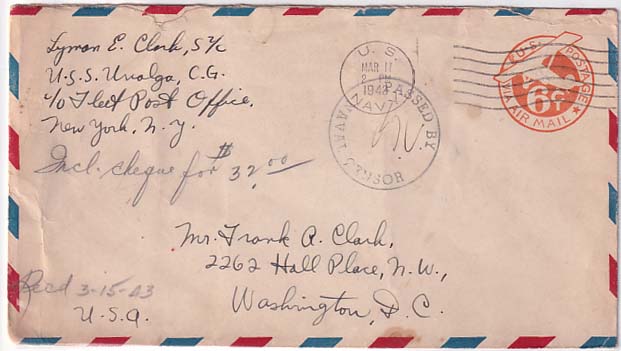 Lyman E. Clark, S
U.S.S. Unalga, C.G.
c/o Fleet Post Office,
New York, N.Y.
Incl. cheque for $32.00
U.S.
MAR 11
PM
1943
NAVY
PASSED BY
NAVAL CENSOR
U.S. POSTAGE
6¢
VIA AIR MAIL
Mr. Frank A. Clark,
2262 Hall Place, N.W.,
Washington, D.C.
Recd 3-15-43
U.S.A.